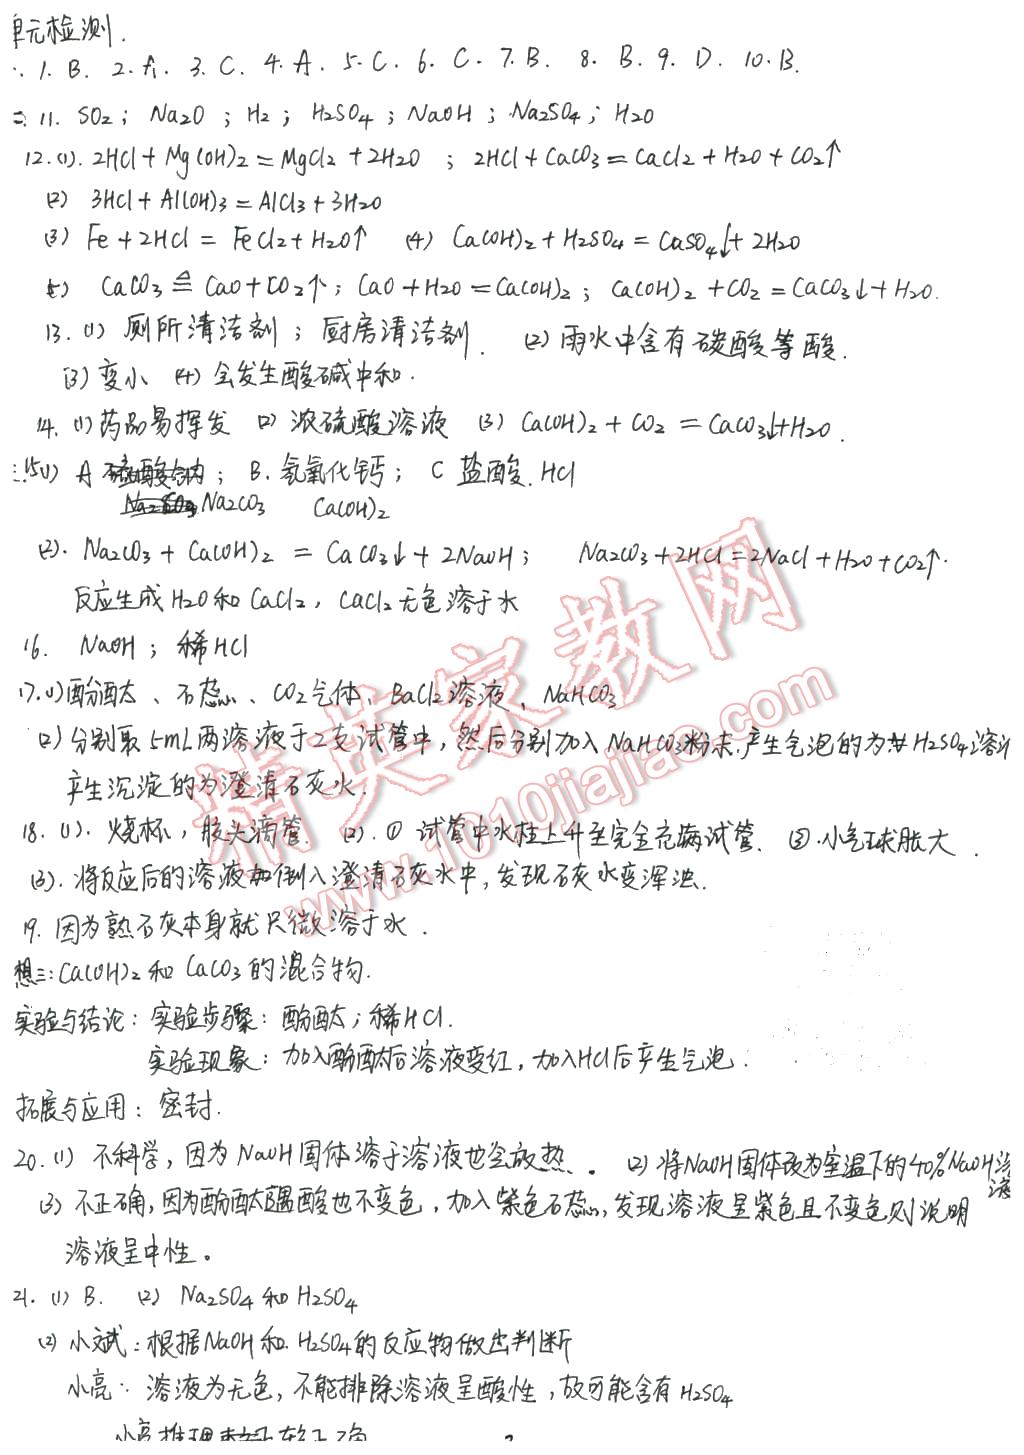 单元检测.
1. B. 2. A. 3. C. 4. A. 5. C. 6. C. 7. B. 8. B. 9. D. 10. B.
二. 11. SO₂; Na₂O; H₂; H₂SO₄; NaOH; Na₂SO₄; H₂O
12.(1). 2HCl+Mg(OH)₂=MgCl₂+2H₂O; 2HCl+CaCO₃=CaCl₂+H₂O+CO₂↑
(2) 3HCl+Al(OH)₃=AlCl₃+3H₂O
(3) Fe+2HCl=FeCl₂+H₂O↑ (4) Ca(OH)₂+H₂SO₄=CaSO₄↓+2H₂O
(5) CaCO₃≜CaO+CO₂↑; CaO+H₂O=Ca(OH)₂; Ca(OH)₂+CO₂=CaCO₃↓+H₂O.
13. (1) 厕所清洁剂; 厨房清洁剂. (2) 雨水中含有碳酸等酸.
(3) 变小 (4) 会发生酸碱中和.
14. (1) 药品易挥发 (2) 浓硫酸溶液 (3) Ca(OH)₂+CO₂=CaCO₃↓+H₂O.
三.15(1) A ; B. 氢氧化钙; C 盐酸. HCl
Na₂CO₃ Ca(OH)₂
(2). Na₂CO₃+Ca(OH)₂=CaCO₃↓+2NaOH; Na₂CO₃+2HCl=2NaCl+H₂O+CO₂↑.
反应生成H₂O和CaCl₂, CaCl₂无色溶于水
16. NaOH; 稀HCl
17.(1)酚酞、石蕊、CO₂气体、BaCl₂溶液、NaHCO₃
(2) 分别取5mL两溶液于2支试管中, 然后分别加入NaHCO₃粉末.产生气泡的为 H₂SO₄溶
产生沉淀的为澄清石灰水.
18. (1). 烧杯, 胶头滴管 (2). ① 试管中水柱上升至完全充满试管. ② 小气球胀大.
(3). 将反应后的溶液倒入澄清石灰水中, 发现石灰水变浑浊.
19. 因为熟石灰本身就只微溶于水.
想三: Ca(OH)₂和CaCO₃的混合物.
实验与结论: 实验步骤: 酚酞; 稀HCl.
实验现象: 加入酚酞后溶液变红, 加入HCl后产生气泡.
拓展与应用: 密封.
20. (1) 不科学, 因为NaOH固体溶于溶液也会放热. (2) 将NaOH固体改为室温下的40%NaOH溶液
(3) 不正确, 因为酚酞遇酸也不变色, 加入紫色石蕊, 发现溶液呈紫色且不变色则说明
溶液呈中性。
21. (1) B. (2) Na₂SO₄和H₂SO₄
(2) 小斌: 根据NaOH和H₂SO₄的反应物做出判断
小亮: 溶液为无色, 不能排除溶液呈酸性, 故可能含有H₂SO₄
精英家教网
www.1010jiajiao.com